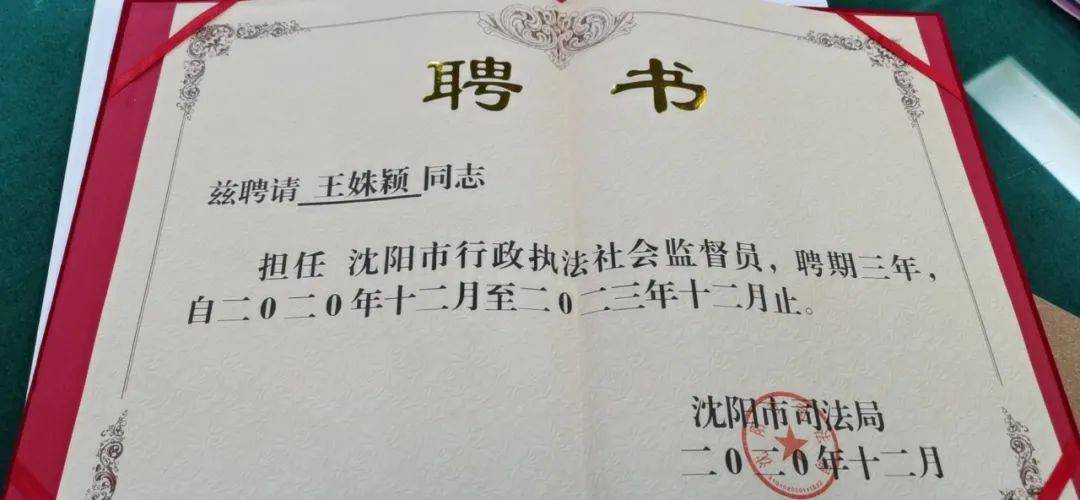 聘书
兹聘请 王姝颖 同志
担任 沈阳市行政执法社会监督员，聘期三年，
自二0二0年十二月至二0二三年十二月止。
沈阳市司法局
二0二0年十二月